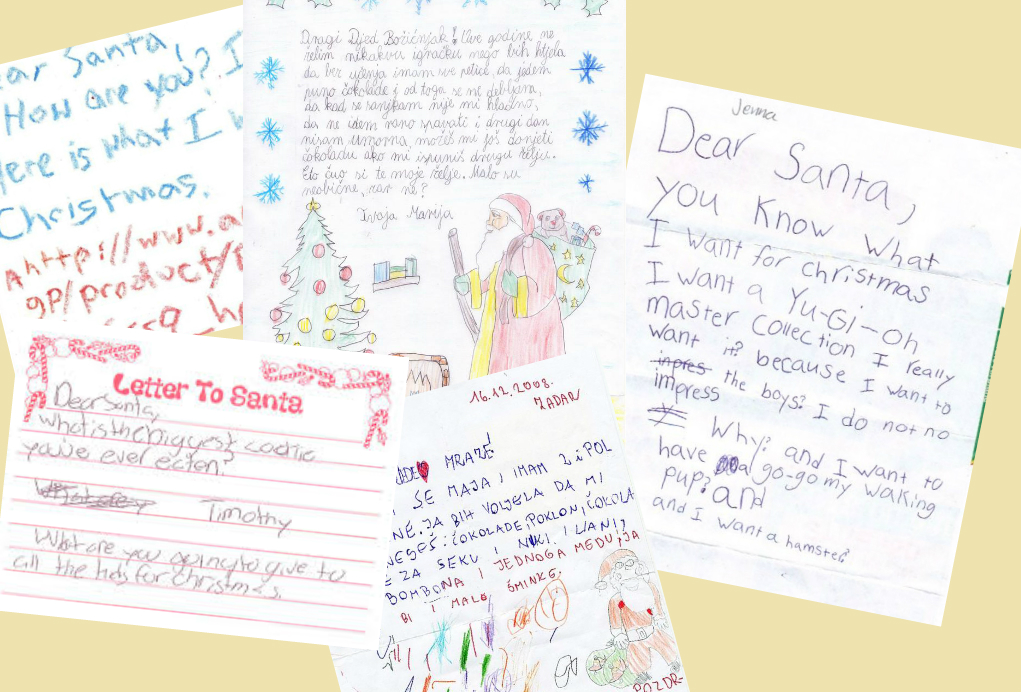 ear Santa,
How are you? I
Here is what I w
Christmas.
A http://www.a
gp/product/
Dragi Djed Božićnjak! Ove godine ne
želim nikakvu igračku nego bih htjela
da bez učenja imam sve petice, da jedem
puno čokolade i od toga se ne debljam,
da kad se sanjkam nije mi hladno,
da ne idem rano spavati i drugi dan
nisam umorna, možeš mi još donjeti
čokoladu ako mi ispuniš drugu želju.
Eto čuo si te moje želje. Malo su
neobične, zar ne?
Marija
Jenna
Dear Santa,
you Know what
I want for christmas
I want a Yu-Gi-Oh
master Collection I really
want it? because I want to
inpres the boys? I do not no
impress
Why? and I want to
have a go-go my walking
pup? and
and I want a hamster?
Letter To Santa
Dear Santa,
what is the biggest cookie
you've ever eaten?
Timothy
What are you going to give to
all the kids for christmas.
16.12.2008.
ZADAR
DJEDE MRAZE!
SE MAJA I IMAM 2 i POL
NE. JA BIH VOLJELA DA MI
NESEŠ: ČOKOLADE, POKLON, ČOKOLA
E ZA SEKU I NIKI I LANI,
BOMBONA I JEDNOGA MEDU, JA
BI I MALO ŠMINKE.
POZDR-